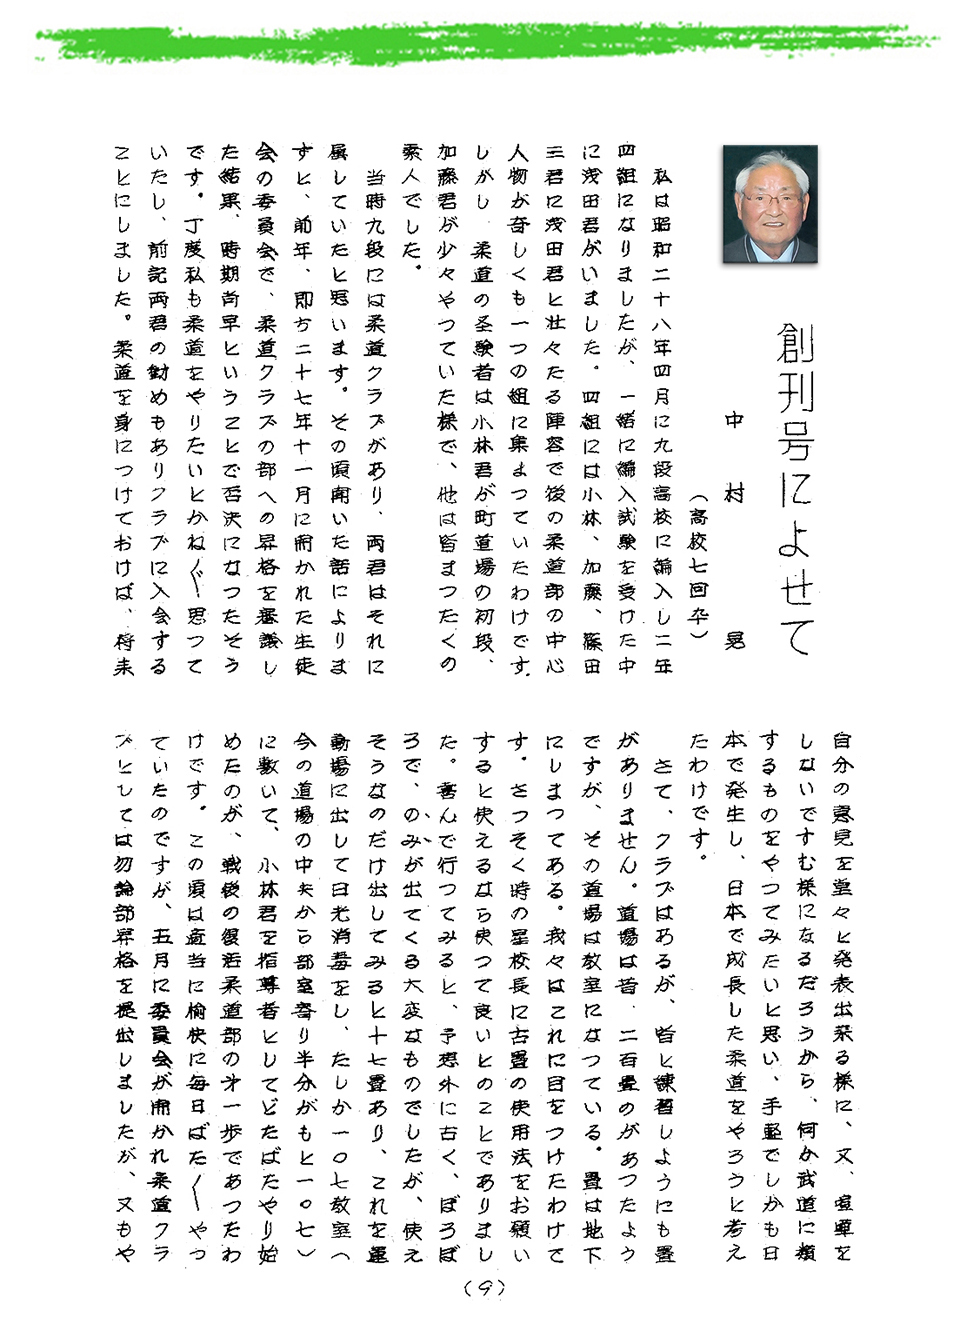 創刊号によせて
中村晃
（高校七回卒）
私は昭和二十八年四月に九段高校に編入し二年
四組になりましたが、一緒に編入試験を受けた中
に浅田君がいました。四組には小林、加藤、篠田
三君に浅田君と壮々たる陣容で後の柔道部の中心
人物が奇しくも一つの組に集まつていたわけです。
しかし、柔道の圣験者は小林君が町道場の初段、
加藤君が少々やつていた様で、他は皆まつたくの
素人でした。
当時九段には柔道クラブがあり、両君はそれに
属していたと思います。その頃聞いた話によりま
すと、前年、即ち二十七年十一月に開かれた生徒
会の委員会で、柔道クラブの部への昇格を審議し
た結果、時期尚早ということで否決になつたそう
です。丁度私も柔道をやりたいとかね〴〵思つて
いたし、前記両君の勧めもありクラブに入会する
ことにしました。柔道を身につけておけば、将来
自分の意見を堂々と発表出来る様に、又、喧嘩を
しないですむ様になるだろうから、何か武道に類
するものをやつてみたいと思い、手軽でしかも日
本で発生し、日本で成長した柔道をやろうと考え
たわけです。
さて、クラブはあるが、皆と練習しようにも畳
がありません。道場は昔、二百畳のがあつたよう
ですが、その道場は教室になつている。畳は地下
にしまつてある。我々はこれに目をつけたわけで
す。さつそく時の星校長に古畳の使用法をお願い
すると使えるなら使つて良いとのことでありまし
た。喜んで行つてみると、予想外に古く、ぼろぼ
ろで、のみが出てくる大変なものでしたが、使え
そうなのだけ出してみると十七畳あり、これを運
動場に出して日光消毒をし、たしか一〇七教室へ
今の道場の中央から部室寄り半分がもと一〇七）
に敷いて、小林君を指導者としてどたばたやり始
めたのが、戦後の復活柔道部の才一歩であつたわ
けです。この頃は適当に愉快に毎日ばた〱やつ
ていたのですが、五月に委員会が開かれ柔道クラ
ブとしては勿論部昇格を提出しましたが、又もや
（9）